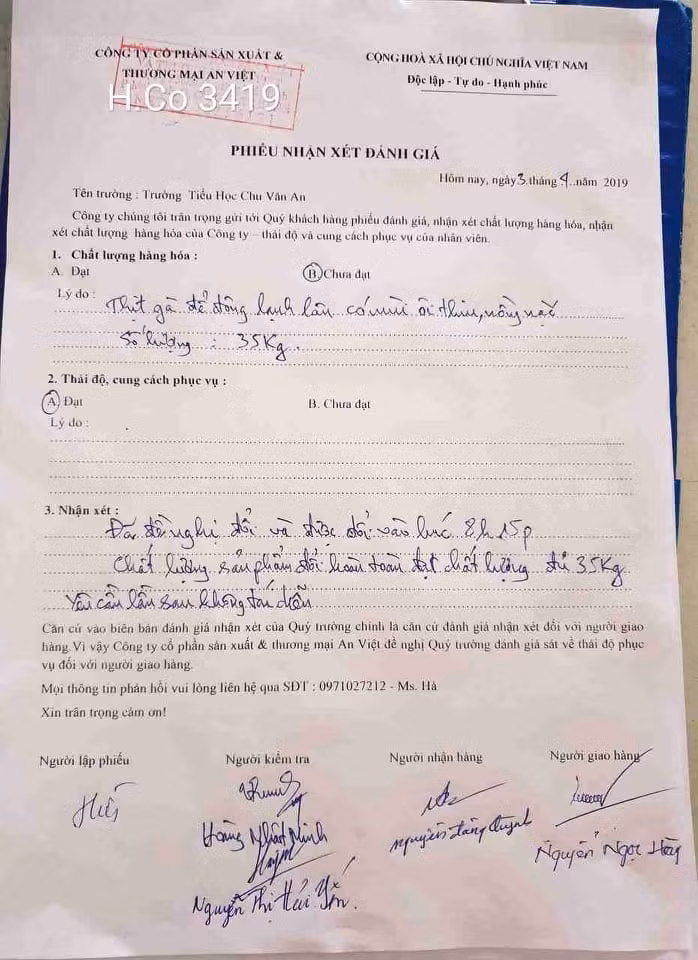 CÔNG TY CỔ PHẦN SẢN XUẤT &
THƯƠNG MẠI AN VIỆT
H.Co 3419
CỘNG HOÀ XÃ HỘI CHỦ NGHĨA VIỆT NAM
Độc lập - Tự do - Hạnh phúc
PHIẾU NHẬN XÉT ĐÁNH GIÁ
Hôm nay, ngày 3 tháng 4 năm 2019
Tên trường : Trường Tiểu Học Chu Văn An
Công ty chúng tôi trân trọng gửi tới Quý khách hàng phiếu đánh giá, nhận xét chất lượng hàng hóa, nhận
xét chất lượng hàng hóa của Công ty – thái độ và cung cách phục vụ của nhân viên.
1. Chất lượng hàng hóa :
A. Đạt
B. Chưa đạt
Lý do : Thịt gà để đông lạnh lâu có mùi ôi thiu, nồng nặc
Số lượng : 35Kg.
2. Thái độ, cung cách phục vụ :
A. Đạt
B. Chưa đạt
Lý do :
3. Nhận xét :
Đã đề nghị đổi và được đổi vào lúc 8h15p
Chất lượng sản phẩm đổi hoàn toàn đạt chất lượng đủ 35Kg
Yêu cầu lần sau không tái diễn
Căn cứ vào biên bản đánh giá nhận xét của Quý trường chính là căn cứ đánh giá nhận xét đối với người giao
hàng.Vì vậy Công ty cổ phần sản xuất & thương mại An Việt đề nghị Quý trường đánh giá sát về thái độ phục
vụ đối với người giao hàng.
Mọi thông tin phản hồi vui lòng liên hệ qua SĐT : 0971027212 - Ms. Hà
Xin trân trọng cảm ơn!
Người lập phiếu
Người kiểm tra
Người nhận hàng
Người giao hàng
Hoàng Nhật Minh
Nguyễn Đăng Quỳnh
Nguyễn Ngọc
Nguyễn Thị Hải Yến.